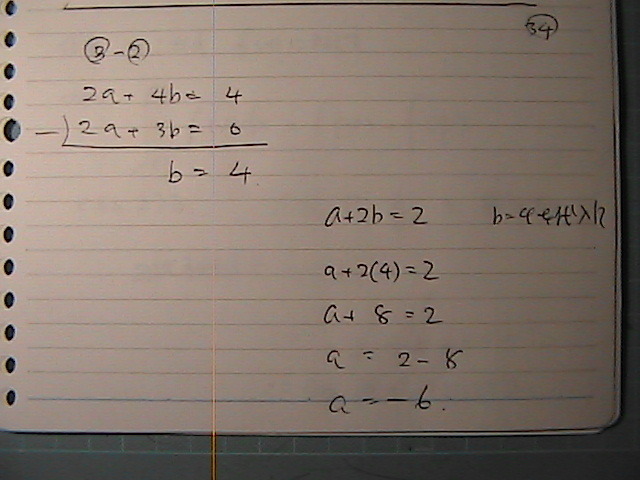 34
③-②
2a + 4b = 4
-) 2a + 3b = 0
b = 4
a+2b=2
b=4 代入
a+2(4)=2
a+ 8 =2
a = 2-8
a = -6.